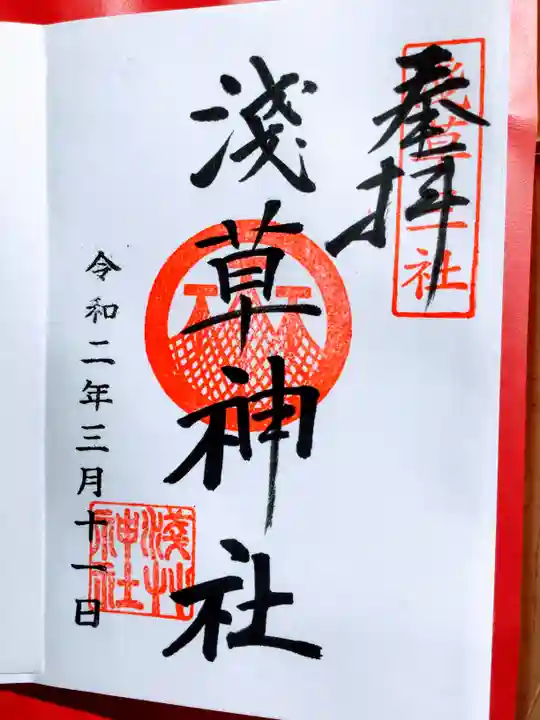 奉拝
淺草神社
令和二年三月十一日
淺草
神社